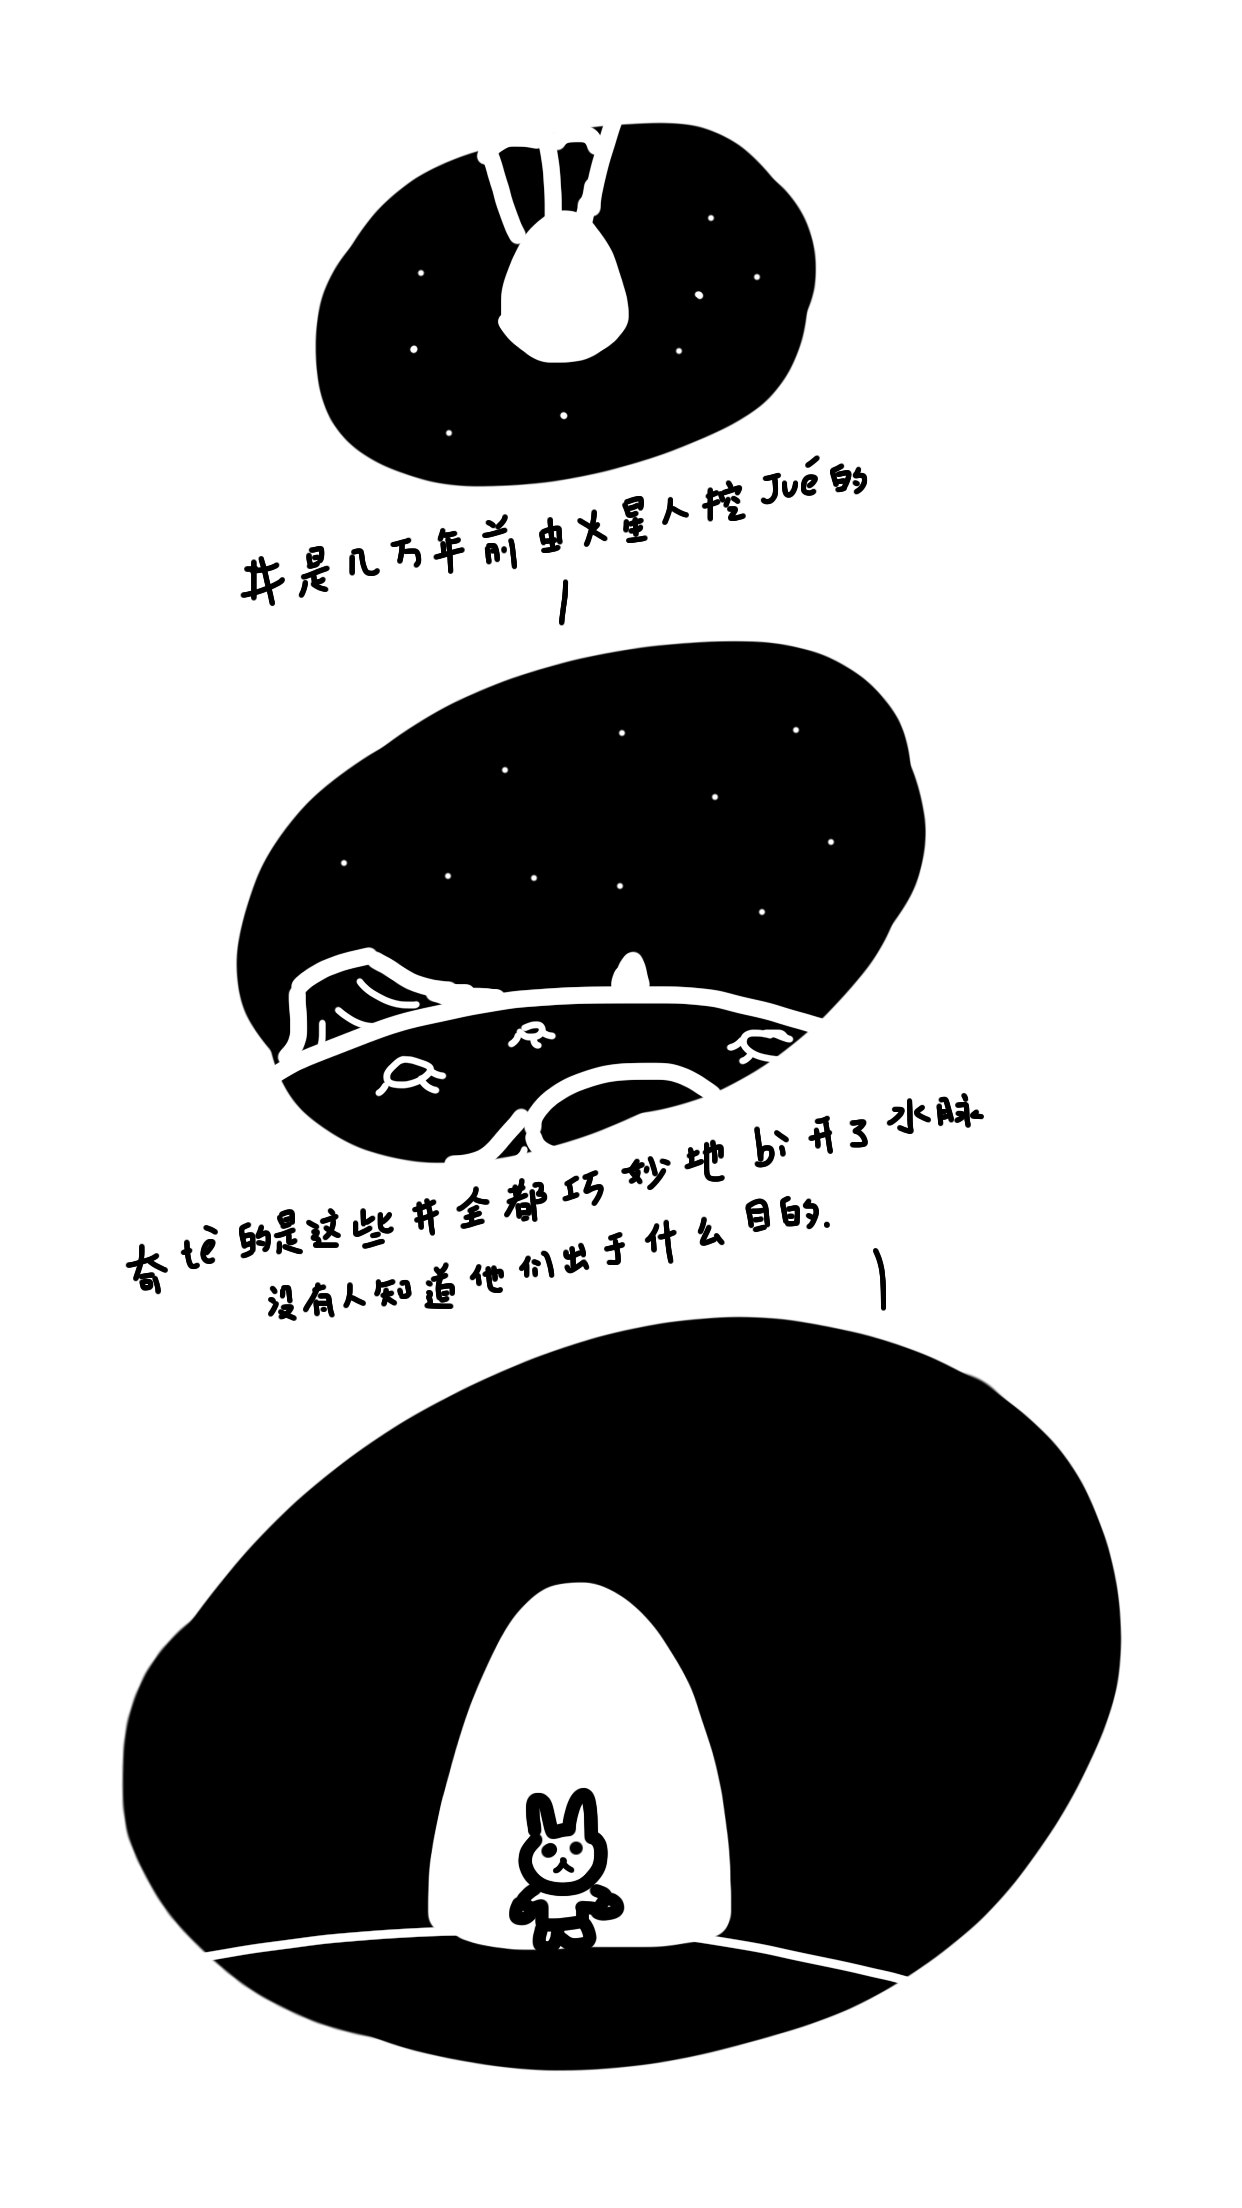 井是几万年前由火星人挖Jué的
奇tè的是这些井全都巧妙地bì开了水脉
没有人知道他们出于什么目的.